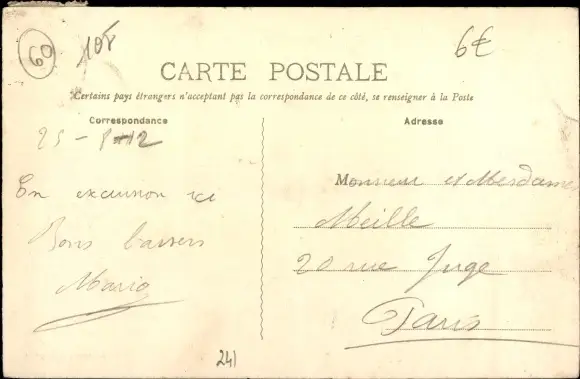 60
108
6€
CARTE POSTALE
Certains pays étrangers n'acceptant pas la correspondance de ce côté, se renseigner à la Poste
Correspondance
Adresse
25 - 8 - 12
En excursion ici
Bons baisers
Maria
Monsieur et Mesdames
Meille
20 rue Juge
Paris
241